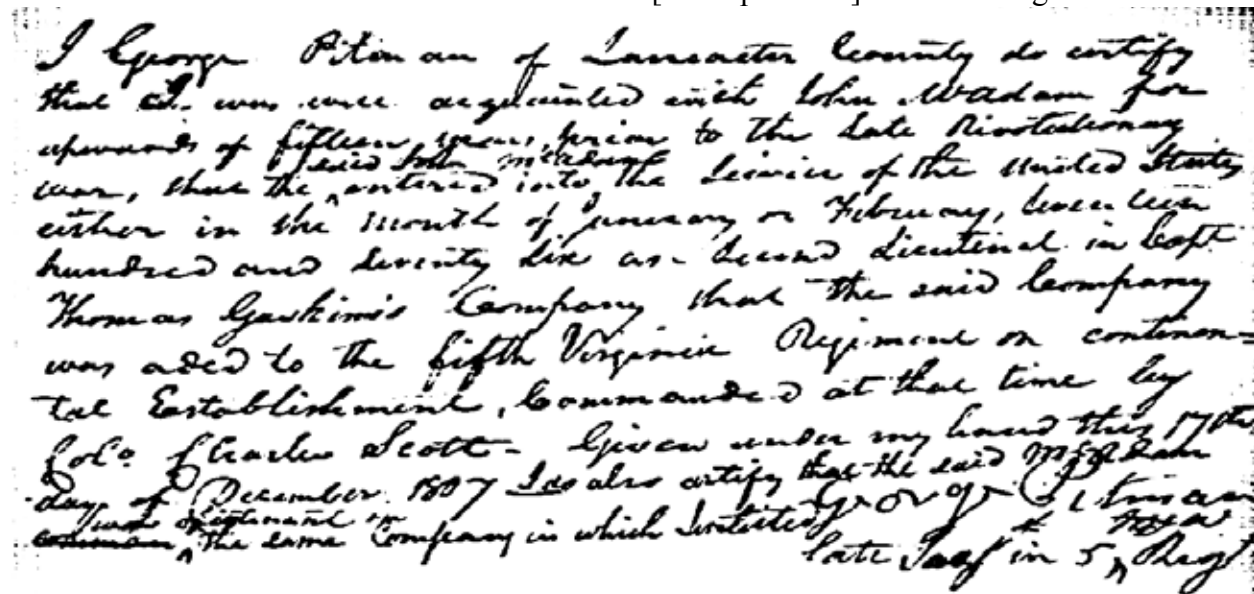 I George Pitman of Lancaster County do certify
that I was well acquainted with John McAdam for
upwards of fifteen years, prior to the late Rivolutionary
said John McAdam
war, that the entered into the Service of the United States
either in the month of January or February, Seventeen
hundred and Seventy Six as Second Lieutenant in Capt
Thomas Gaskins's Company that the said Company
was aded to the fifth Virginia Regiment on continen=
tal Establishment, Commanded at that time by
Colo. Charles Scott - Given under my hand this 17th
day of December 1807 I do also certify that the said McAdam
George Pitman
was Lieutenant in
the same Company in which I inlisted
late in 5th Regt